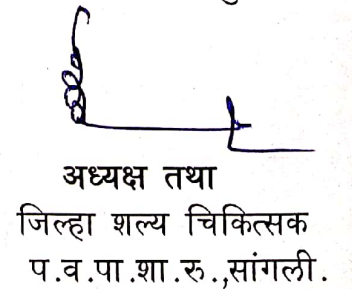 अध्यक्ष तथा
जिल्हा शल्य चिकित्सक
प.व.पा.शा.रु.,सांगली.